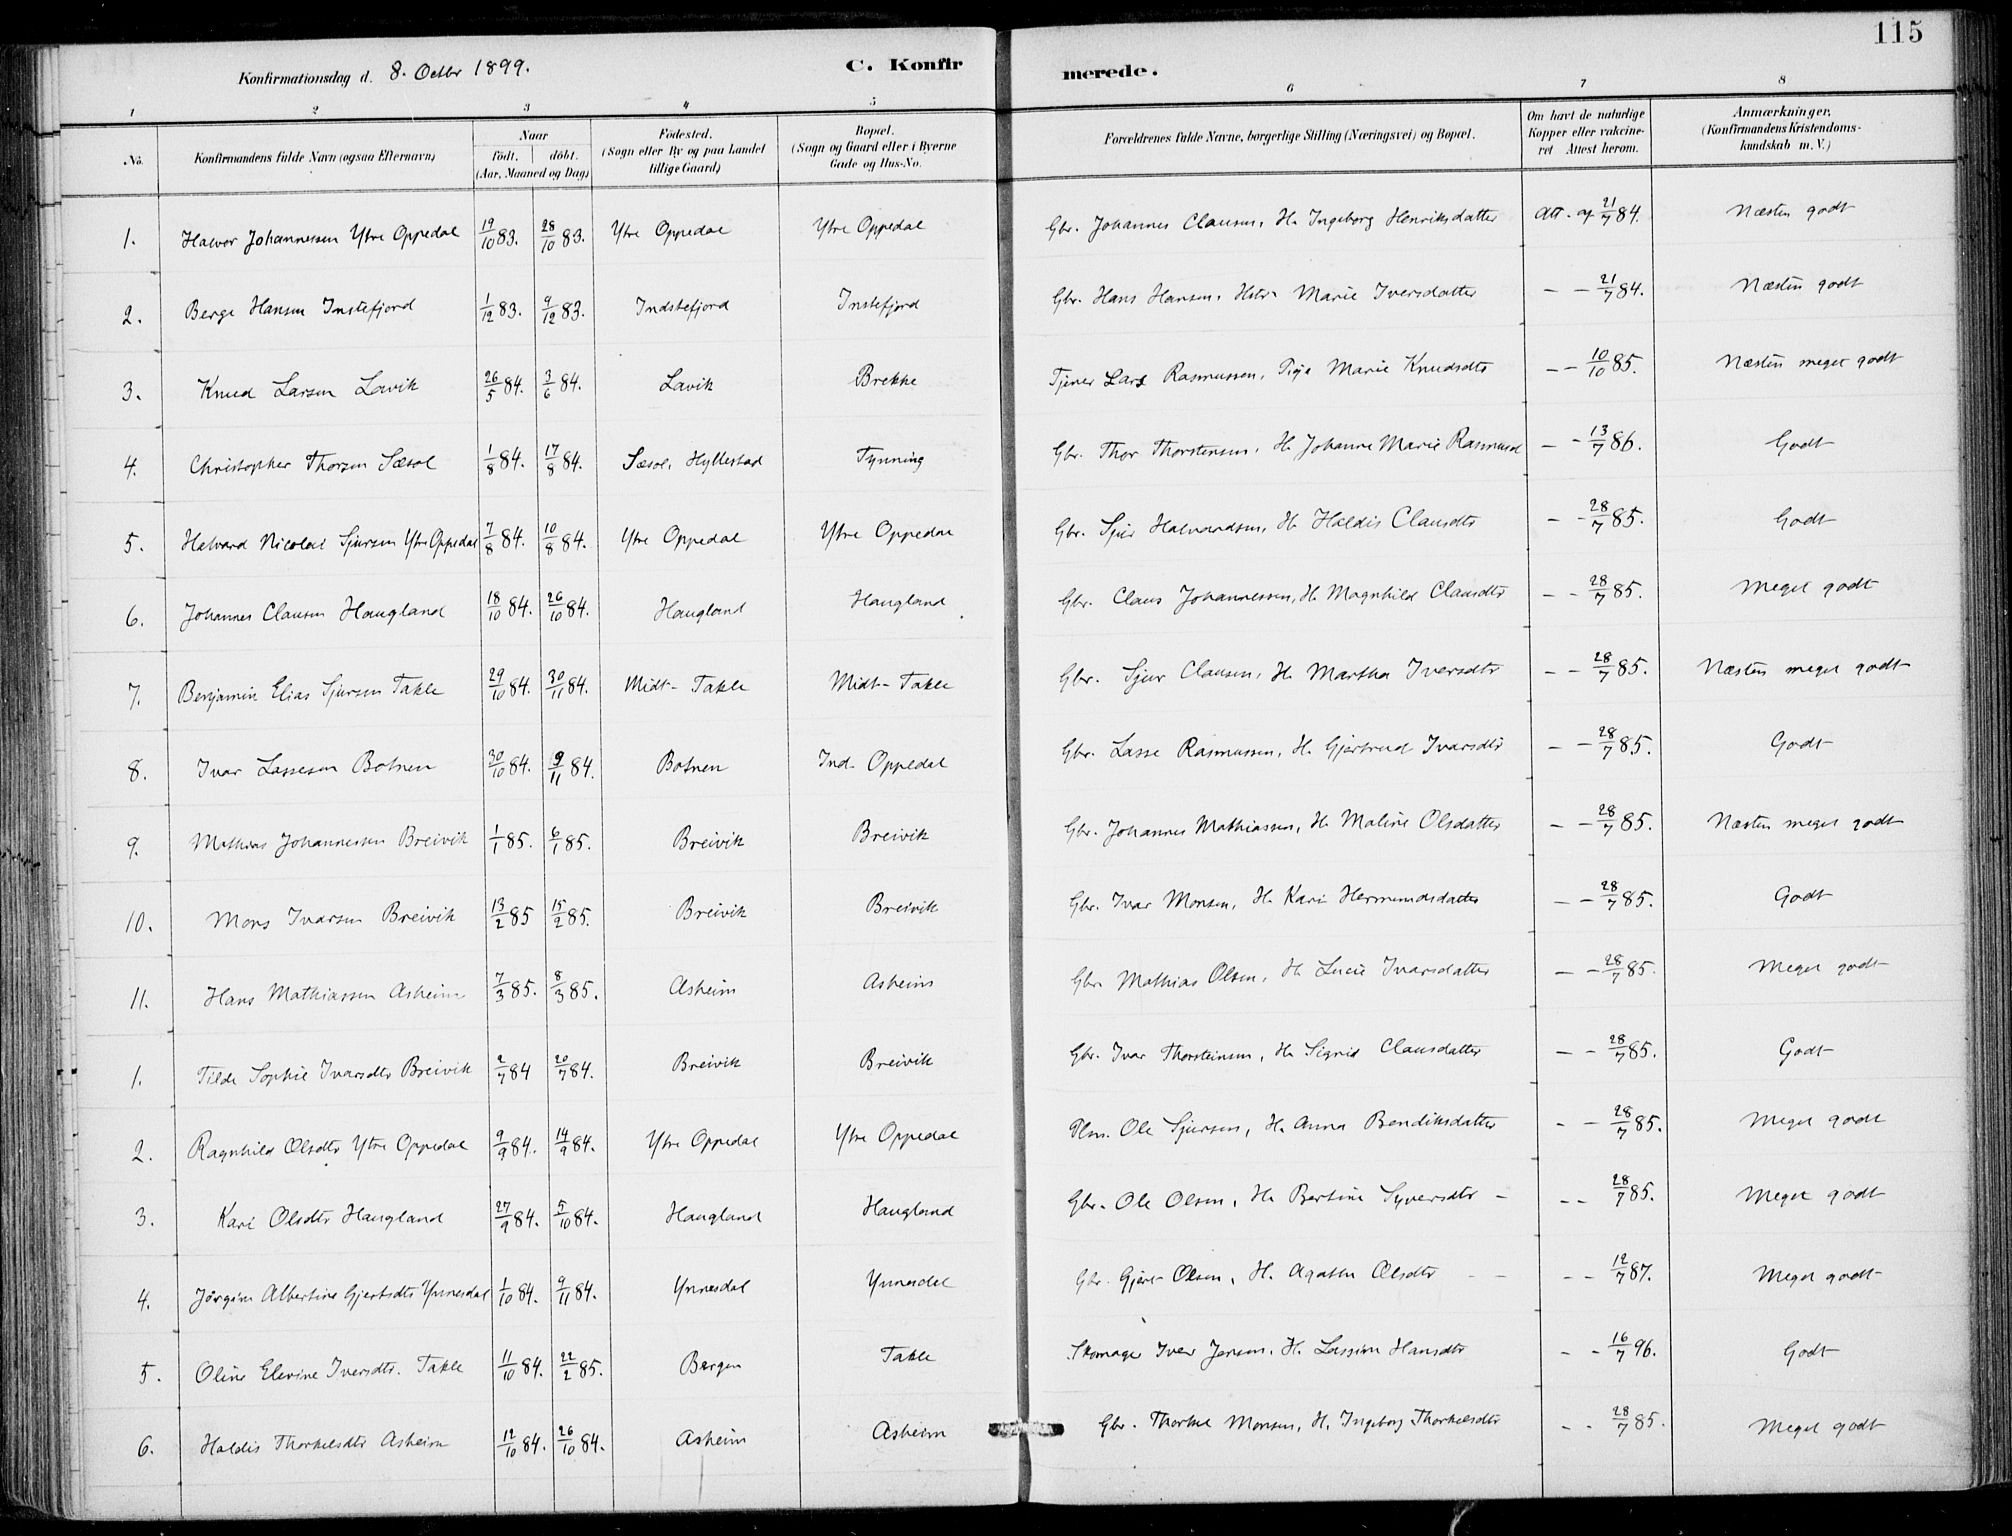 115
Konfirmationsdag d. 8. Octbr 1899.
C. Konfirmerede.
1 2 3 4 5 6 7 8
No. Konfirmandens fulde Navn (ogsaa Efternavn) Naar født. døbt. (Aar, Maaned og Dag) Fødested. (Sogn eller By og paa Landet tillige Gaard) Bopæl. (Sogn og Gaard eller i Byerne Gade og Hus-No. Forældrenes fulde Navne, borgerlige Stilling (Næringsvei) og Bopæl. Om havt de naturlige Kopper eller vakcineret Attest herom. Anmærkninger. (Konfirmandens Kristendomskundskab m. V.)
1. Halvor Johannessen Ytre Oppedal 19/10 83. 28/10 83. Ytre Oppedal Ytre Oppedal Gbr. Johannes Clausen, H. Ingeborg Henriksdatter Att. af 21/7 84. Næsten godt
2. Berge Hansen Instefjord 1/12 83. 9/12 83. Indstefjord Instefjord Gbr. Hans Hansen, Hstr. Marie Iversdatter — — 21/7 84. Næsten godt
3. Knud Larsen Lavik 26/5 84. 3/6 84. Lavik Brekke Tjener Lars Rasmussen, Pige Marie Knudsdtr — — 10/10 85. Næsten meget godt
4. Christopher Thorsen Sæsol 1/8 84. 17/8 84. Sæsol, Hyllestad Tynning Gbr. Thor Thorstensen, H. Johanne Marie Rasmusd — — 13/7 86. Godt
5. Halvard Nicolai Sjursen Ytre Oppedal 7/8 84. 10/8 84. Ytre Oppedal Ytre Oppedal Gbr. Sjur Halvardsen, H. Haldis Clausdtr — — 28/7 85. Godt
6. Johannes Clausen Haugland 18/10 84. 26/10 84. Haugland Haugland Gbr. Claus Johannessen, H. Magnhild Clausdtr — — 28/7 85. Meget godt
7. Benjamin Elias Sjursen Takle 29/10 84. 30/11 84. Midt-Takle Midt-Takle Gbr. Sjur Clausen, H. Martha Iversdtr — — 28/7 85. Næsten meget godt
8. Ivar Lassesen Botnen 30/10 84. 9/11 84. Botnen Ind. Oppedal Gbr. Lasse Rasmussen, H. Gjertrud Ivarsdtr — — 28/7 85. Godt
9. Mathias Johannessen Breivik 1/1 85. 6/1 85. Breivik Breivik Gbr. Johannes Mathiassen, H. Maline Olsdatter — — 28/7 85. Næsten meget godt
10. Mons Ivarsen Breivik 13/2 85 15/2 85. Breivik Breivik Gbr. Ivar Monsen, H. Kari Hermundsdatter — — 28/7 85. Godt
11. Hans Mathiassen Asheim 7/3 85. 8/3 85. Asheim Asheim Gbr. Mathias Olsen, H. Lucie Ivarsdatter — — 28/7 85. Meget godt
1. Tilde Sophie Ivarsdtr Breivik 2/7 84 20/7 84. Breivik Breivik Gbr. Ivar Thorsteinsen, H. Sigrid Clausdatter — — 28/7 85. Godt
2. Ragnhild Olsdtr Ytre Oppedal 9/9 84. 14/9 84. Ytre Oppedal Ytre Oppedal Plm. Ole Sjursen, H. Anna Bendiksdatter - — 28/7 85. Meget godt
3. Kari Olsdtr Haugland 27/9 84. 5/10 84. Haugland Haugland Gbr. Ole Olsen, H. Bertine Syversdtr — - - 28/7 85. Meget godt
4. Jørgine Albertine Gjertsdtr Ynnesdal 1/10 84. 9/11 84. Ynnesdal Ynnesdal Gbr. Gjert Olsen, H. Agathe Olsdtr - - — - 12/7 87. Meget godt
5. Oline Elevine Iversdtr. Takle 11/10 84. 22/2 85. Bergen Takle Skomager Iver Jensen, H. Lassine Hansdtr - - 16/7 96. Godt
6. Haldis Thorkelsdtr Asheim 12/10 84. 26/10 84. Asheim Asheim Gbr. Thorkel Monsen, H. Ingeborg Thorkelsdtr - - 28/7 85. Meget godt